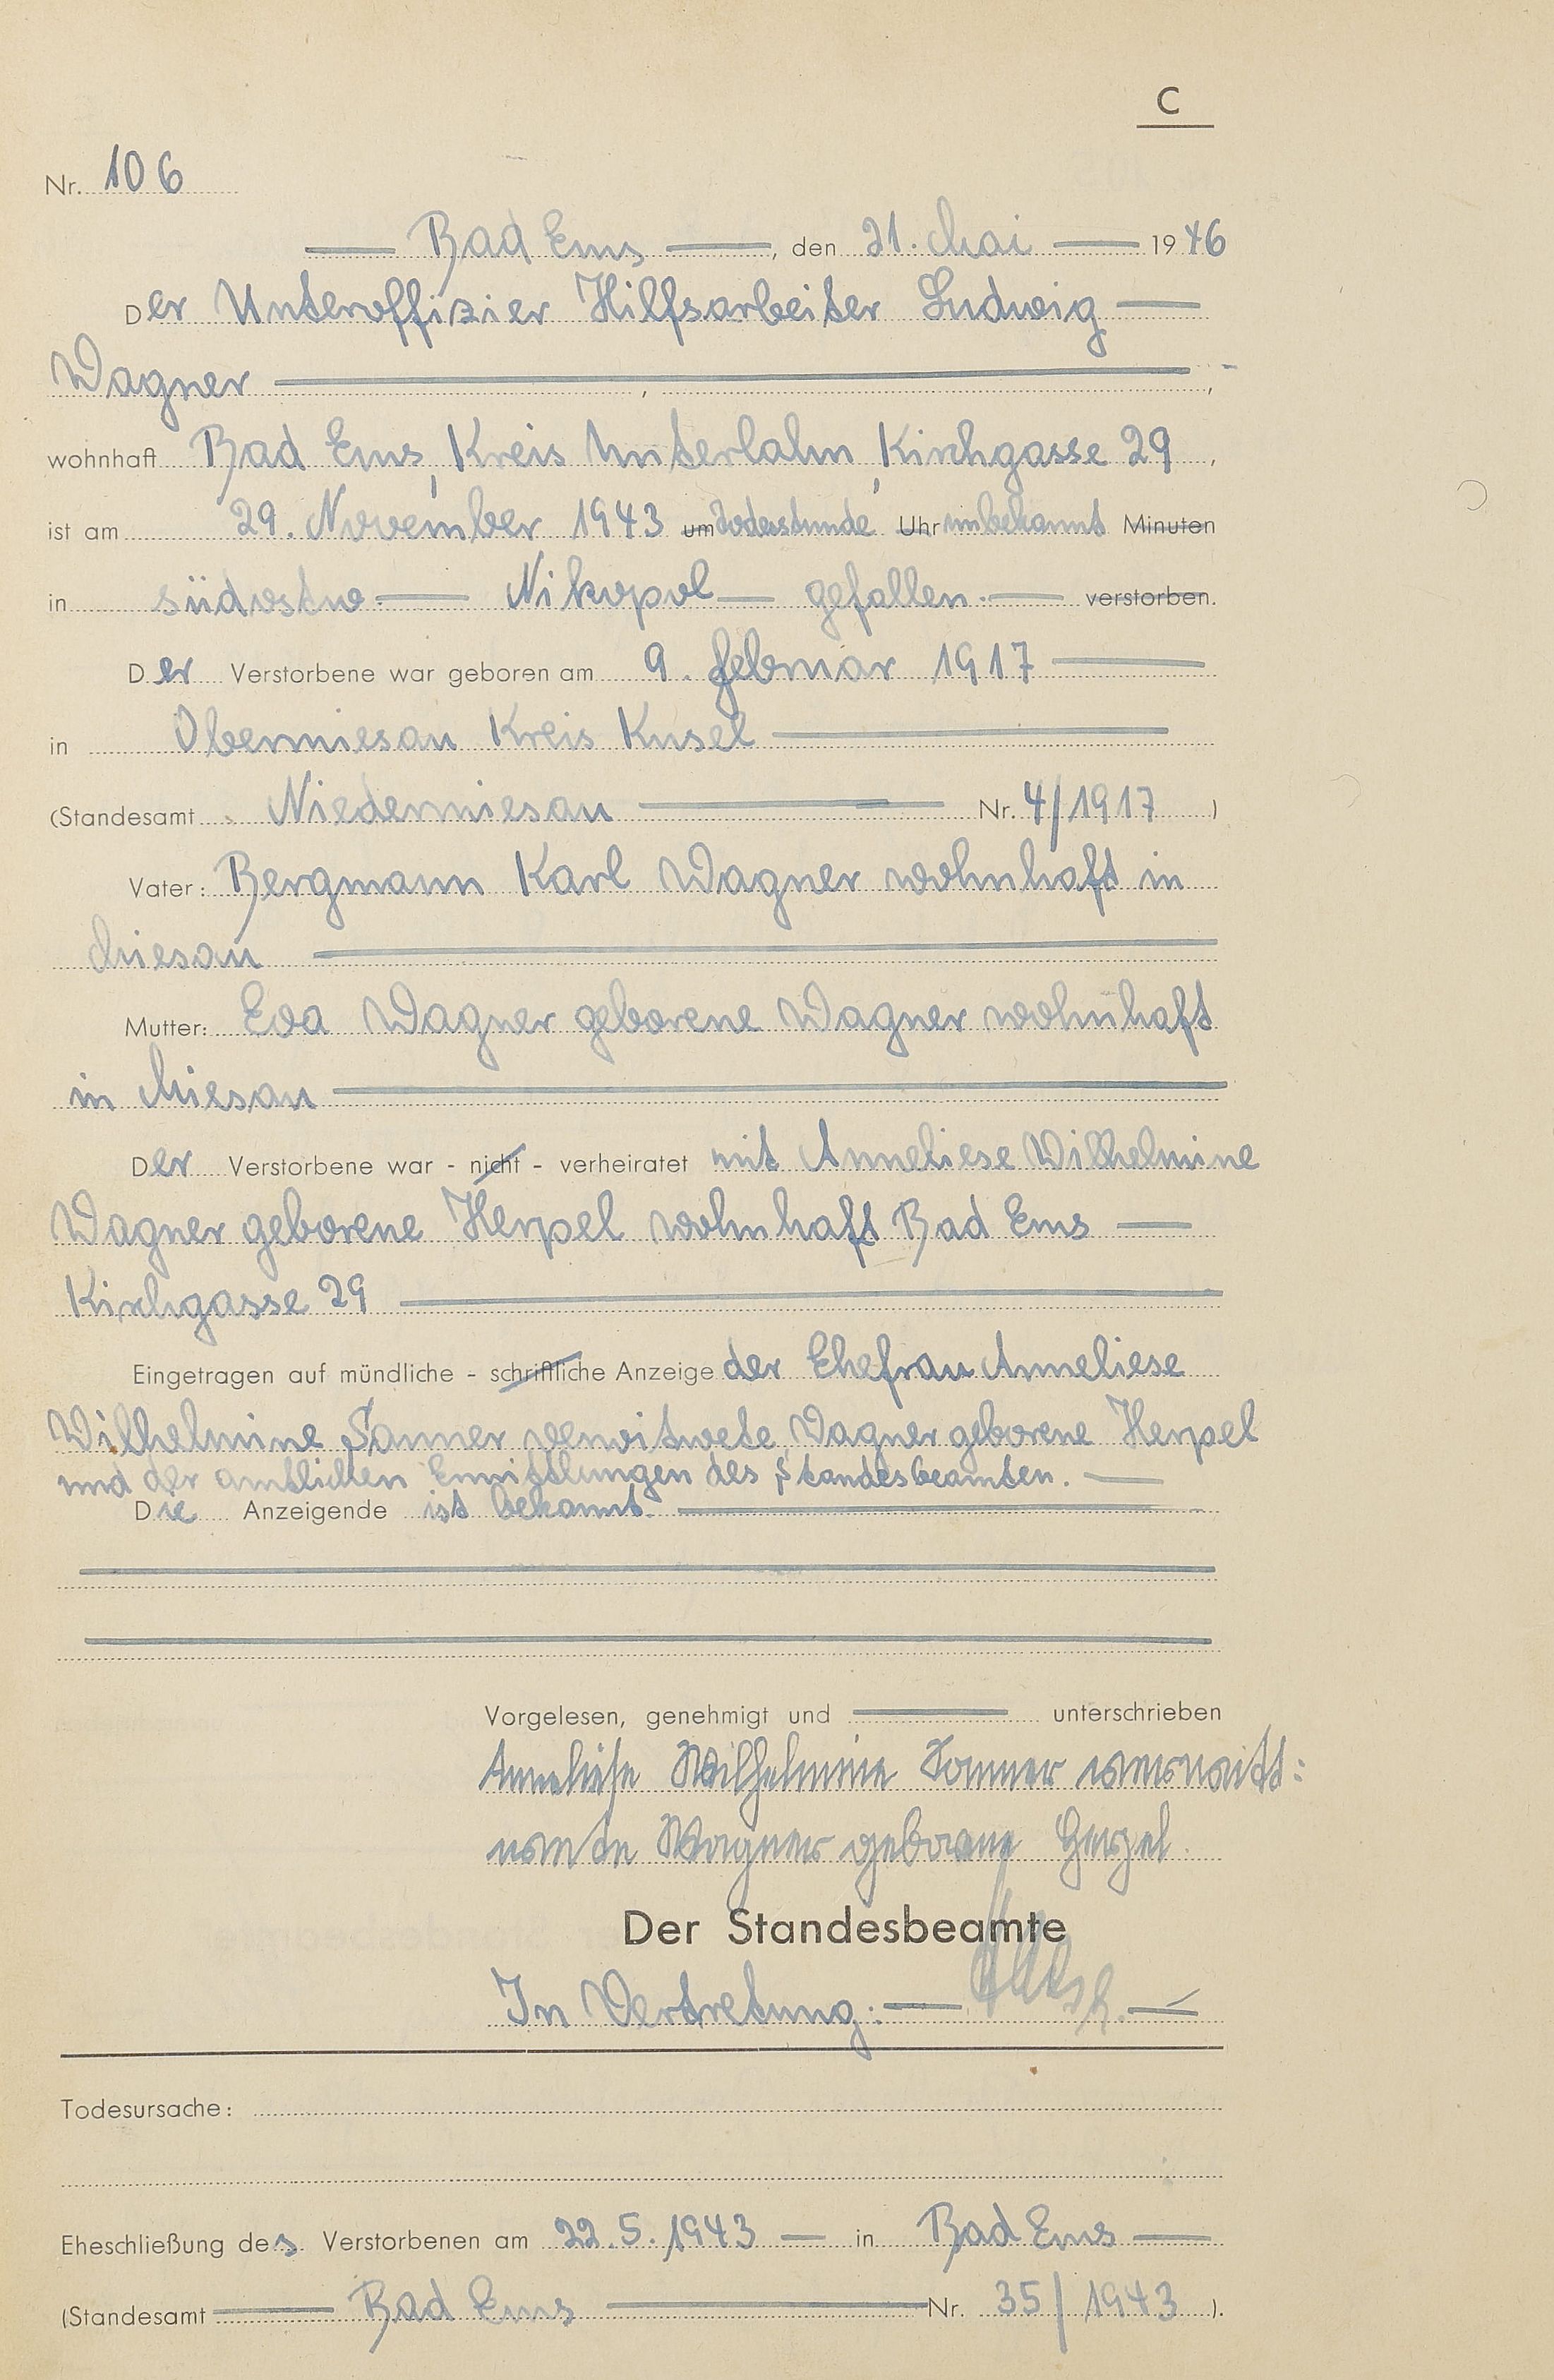 C
Nr. 106
Bad Ems, den 21. Mai 1946
Der Unteroffizier Hilfsarbeiter Ludwig
Wagner , ,
wohnhaft Bad Ems, Kreis Unterlahn, Kirchgasse 29 ,
ist am 29. November 1943 um Todesstunde Uhr unbekannt Minuten
in südostw. Nikopol gefallen. verstorben.
Der Verstorbene war geboren am 9. Februar 1917
in Obermiesau Kreis Kusel
(Standesamt Niedermiesau Nr. 4/1917 )
Vater: Bergmann Karl Wagner wohnhaft in
Miesau
Mutter: Eva Wagner geborene Wagner wohnhaft
in Miesau
Der Verstorbene war - nicht - verheiratet mit Anneliese Wilhelmine
Wagner geborene Herpel wohnhaft Bad Ems
Kirchgasse 29
Eingetragen auf mündliche - schriftliche Anzeige der Ehefrau Anneliese
Wilhelmine Sanner verwitwete Wagner geborene Herpel
und der amtlichen Ermittlungen des Standesbeamten.
Die Anzeigende ist bekannt.
Vorgelesen, genehmigt und unterschrieben
Anneliese Wilhelmine Sanner verwitt:
wete Wagner geborene Herpel.
Der Standesbeamte
In Vertretung:
Todesursache:
Eheschließung des Verstorbenen am 22.5.1943 in Bad Ems
(Standesamt Bad Ems Nr. 35/1943 ).